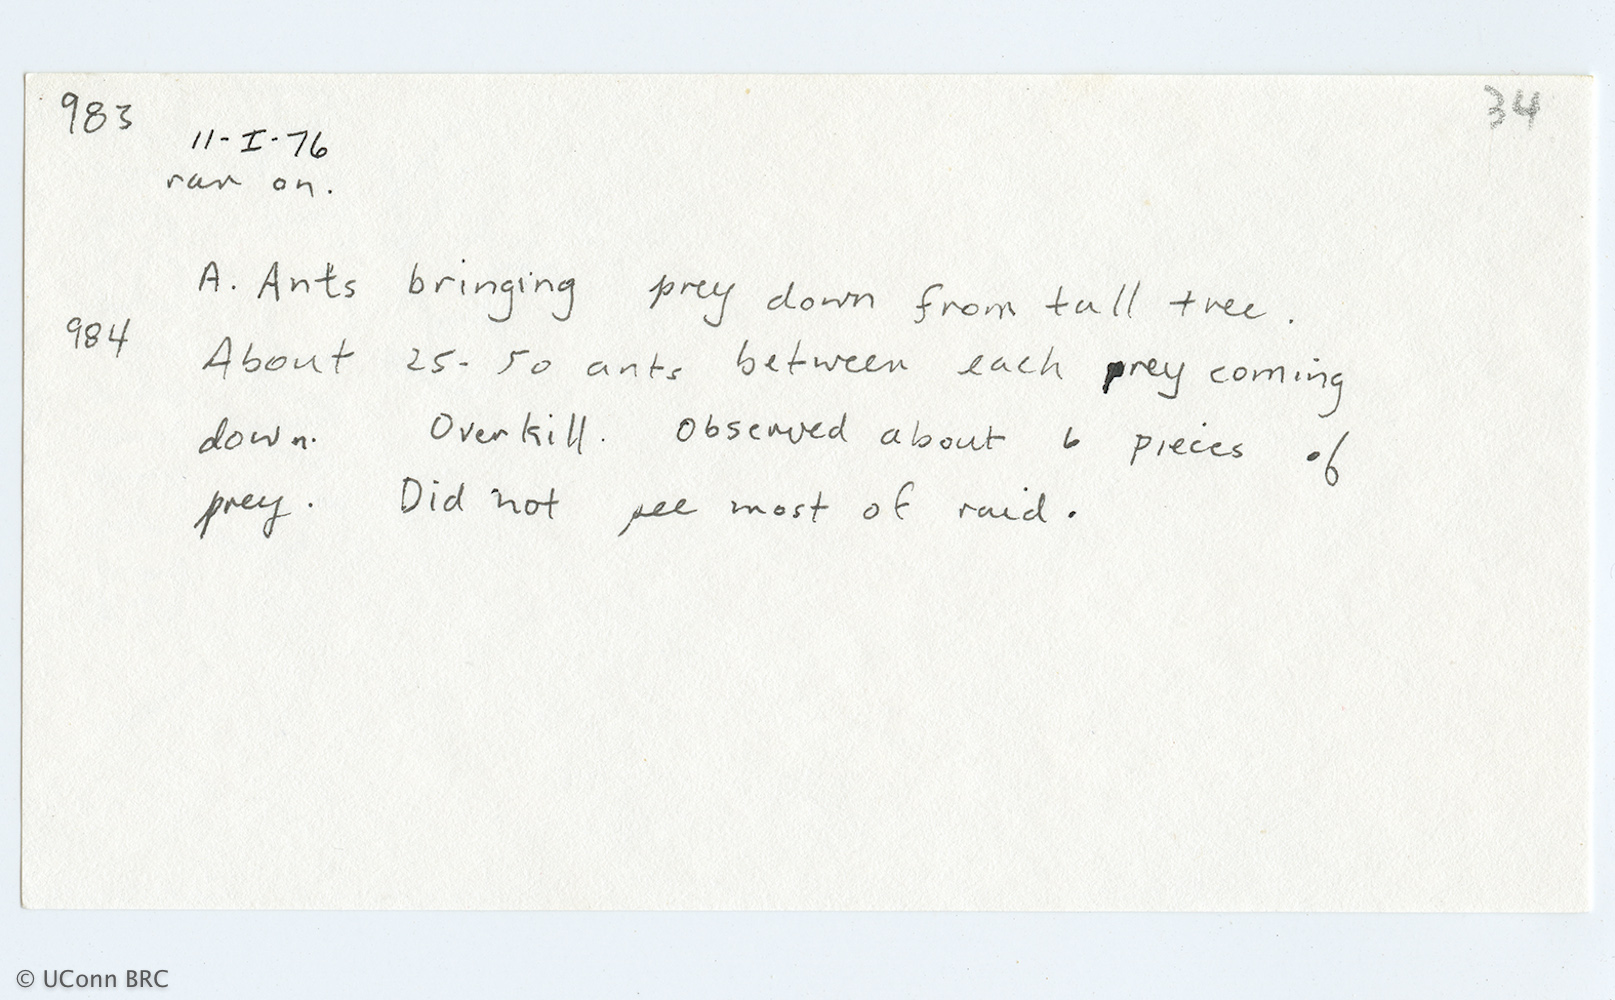 983
34
11-I-76
ran on.
A. Ants bringing prey down from tall tree.
984
About 25-50 ants between each prey coming
down. Overkill. Observed about 6 pieces of
prey. Did not see most of raid.
© UConn BRC